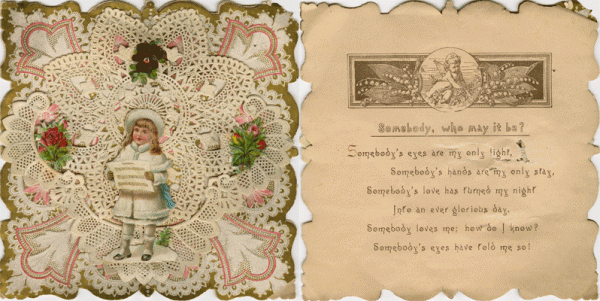 Somebody, who may it be?
Somebody's eyes are my only light,
Somebody's hands are my only stay,
Somebody's love has turned my night
Into an ever glorious day,
Somebody loves me; how do I know?
Somebody's eyes have told me so!